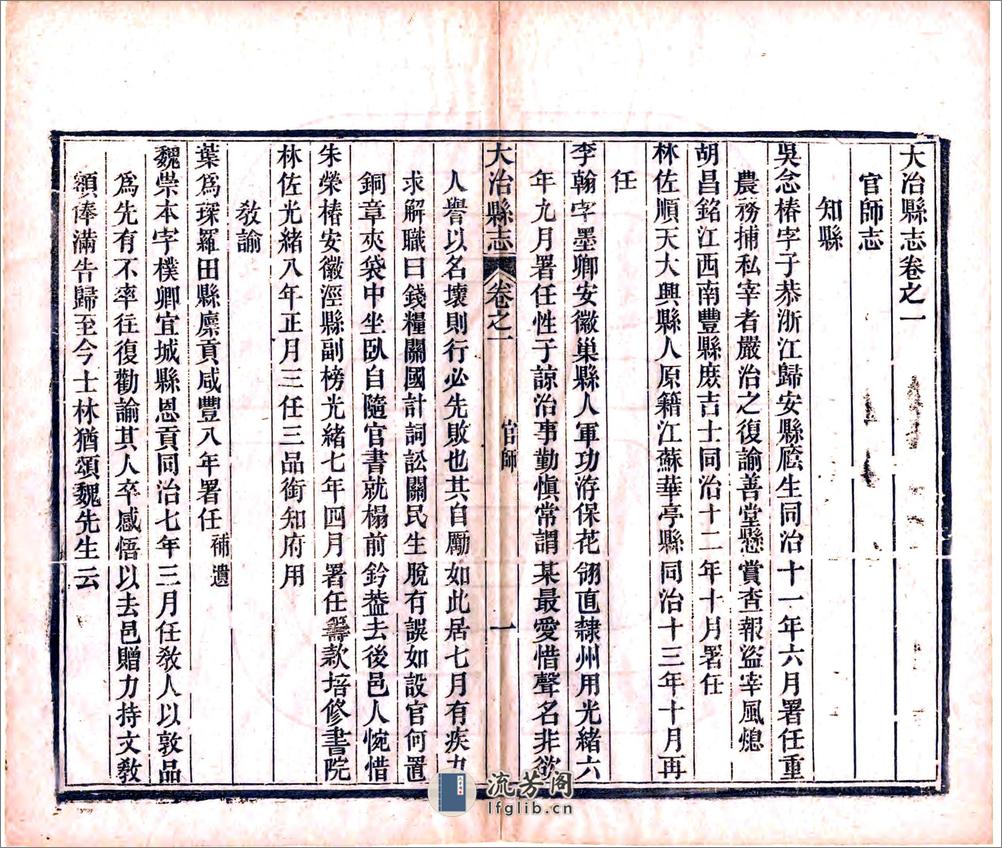 大冶縣志卷之一
官師志
知縣
吳念椿字子恭浙江歸安縣廕生同治十一年六月署任重
農務捕私宰者嚴治之復諭善堂懸賞查報盜宰風熄
胡昌銘江西南豐縣庶吉士同治十二年十月署任
林佐順天大興縣人原籍江蘇華亭縣同治十三年十月再
任
李翰字墨卿安徽巢縣人軍功洊保花翎直隸州用光緒六
年九月署任性子諒治事勤慎常謂某最愛惜聲名非欲
大冶縣志 卷之一 官師 一
人譽以名壞則行必先敗也其自勵如此居七月有疾九
求解職曰錢糧關國計詞訟關民生脫有誤如設官何置
銅章夾袋中坐臥自隨官書就榻前鈐葢去後邑人惋惜
朱榮椿安徽涇縣副榜光緒七年四月署任籌款培修書院
林佐光緒八年正月三任三品銜知府用
教諭
葉爲琛羅田縣廩貢咸豐八年署任補遺
魏崇本字樸卿宜城縣恩貢同治七年三月任教人以敦品
爲先有不率往復勸諭其人卒感悟以去邑贈力持文教
額俸滿告歸至今士林猶頌魏先生云
流芳閣
lfglib.cn